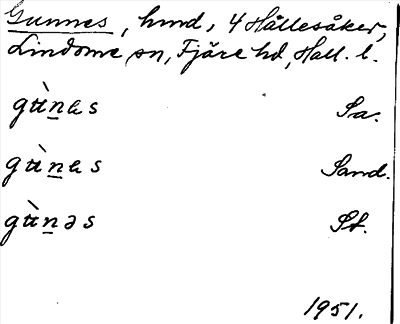 Gunnes, hmd, 4 Hållesåker,
Lindome sn, Fjäre hd, Hall. l.
gùn̲as Sa.
gùn̲as Sand.
gùn̲əs St.
1951.